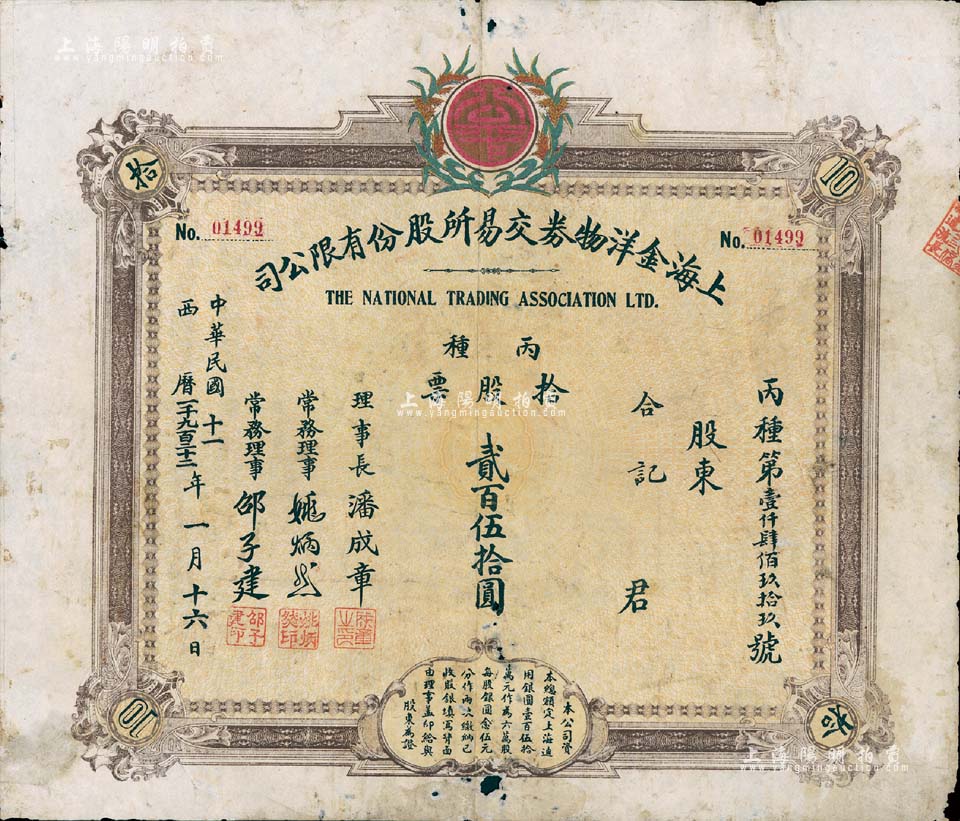 上海陽明拍賣
www.yangmingauction.com
拾
10
No. 01499
No. 01499
上海金洋物券交易所股份有限公司
THE NATIONAL TRADING ASSOCIATION LTD.
丙種
拾股票
貳百伍拾圓
丙種第壹仟肆佰玖拾玖號
股東
合記 君
理事長 潘成章
常務理事 姚炳然
常務理事 邵子建
姚炳然印
邵子建印
中華民國十一
西曆一千九百二十二年一月十六日
本公司資
本總額定上海通
用銀圓壹百伍拾
萬元作為六萬股
每股銀圓念伍元
分作兩次繳納已
收股銀填寫背面
由理事蓋印給與
股東為證
10
拾
上海陽明拍賣
www.yangmingauction.com
上海陽明拍賣
www.yangmingauction.com